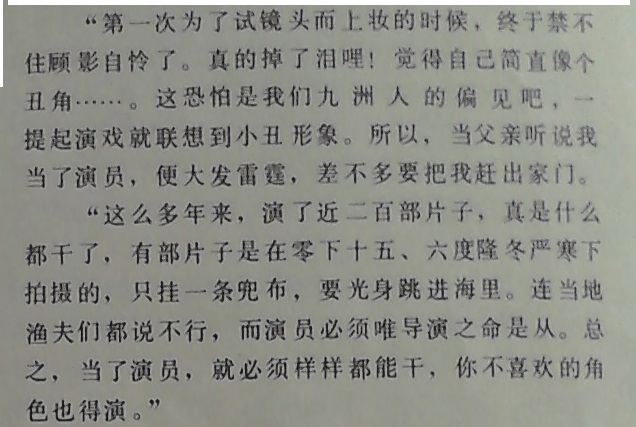 “第一次为了试镜头而上妆的时候，终于禁不
住顾影自怜了。真的掉了泪哩！觉得自己简直像个
丑角……。这恐怕是我们九洲人的偏见吧，一
提起演戏就联想到小丑形象。所以，当父亲听说我
当了演员，便大发雷霆，差不多要把我赶出家门。
“这么多年来，演了近二百部片子，真是什么
都干了，有部片子是在零下十五、六度隆冬严寒下
拍摄的，只挂一条兜布，要光身跳进海里。连当地
渔夫们都说不行，而演员必须唯导演之命是从。总
之，当了演员，就必须样样都能干，你不喜欢的角
色也得演。”